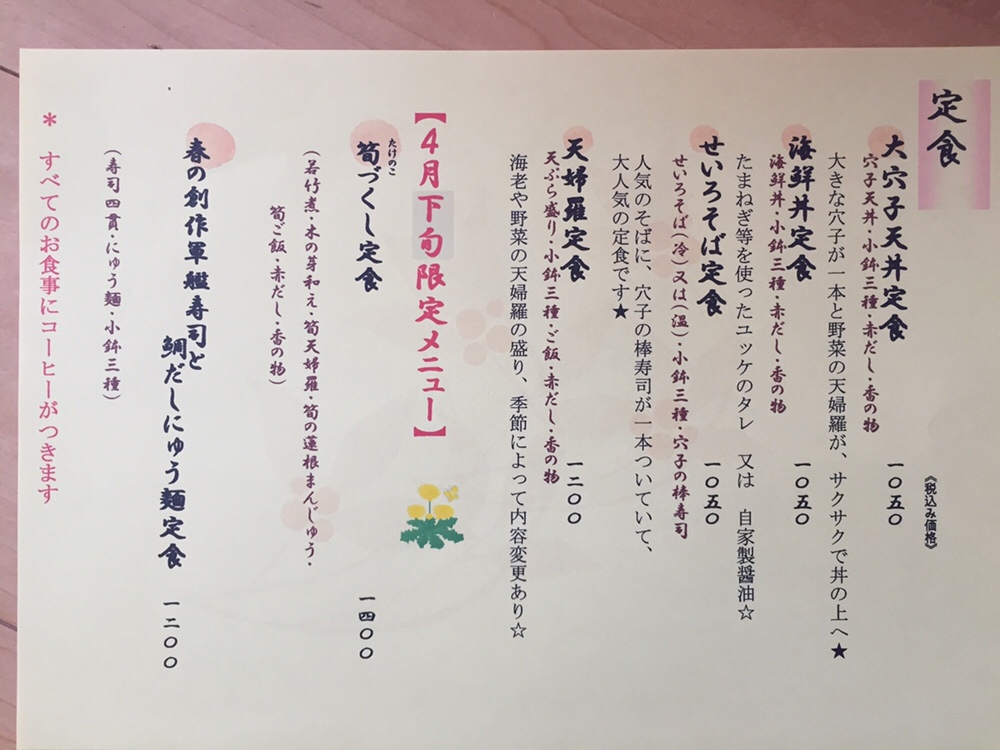 定食
《税込み価格》
大穴子天丼定食 一〇五〇
穴子天丼・小鉢三種・赤だし・香の物
大きな穴子が一本と野菜の天婦羅が、サクサクで丼の上へ★
海鮮丼定食 一〇五〇
海鮮丼・小鉢三種・赤だし・香の物
たまねぎ等を使ったユッケのタレ 又は 自家製醤油☆
せいろそば定食 一〇五〇
せいろそば（冷）又は（温）・小鉢三種・穴子の棒寿司
人気のそばに、穴子の棒寿司が一本ついていて、
大人気の定食です★
天婦羅定食 一二〇〇
天ぷら盛り・小鉢三種・ご飯・赤だし・香の物
海老や野菜の天婦羅の盛り、季節によって内容変更あり☆
【4月下旬限定メニュー】
たけのこ
筍づくし定食 一四〇〇
（若竹煮・木の芽和え・筍天婦羅・筍の蓮根まんじゅう・
筍ご飯・赤だし・香の物）
春の創作軍艦寿司と
鯛だしにゅう麺定食 一二〇〇
（寿司四貫・にゅう麺・小鉢三種）
＊ すべてのお食事にコーヒーがつきます